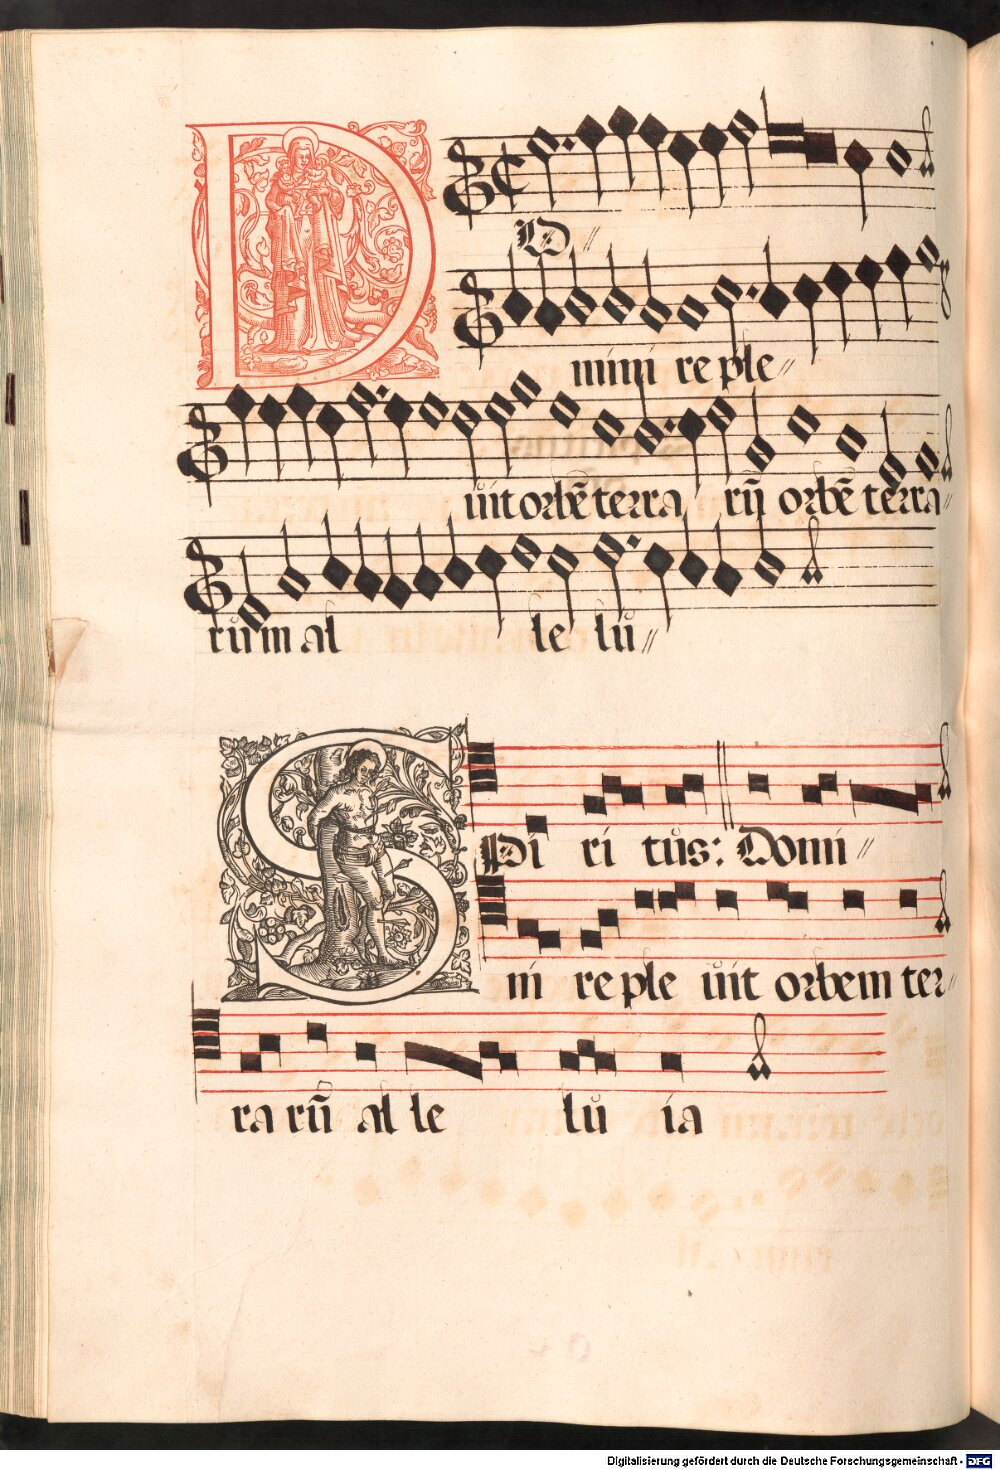 DO
mini reple
uit orbē terra rū orbē terra
rum al le lu
SPi ri tus: Domi
ni reple uit orbem ter
ra rū al le lu ia
Digitalisierung gefördert durch die Deutsche Forschungsgemeinschaft - DFG